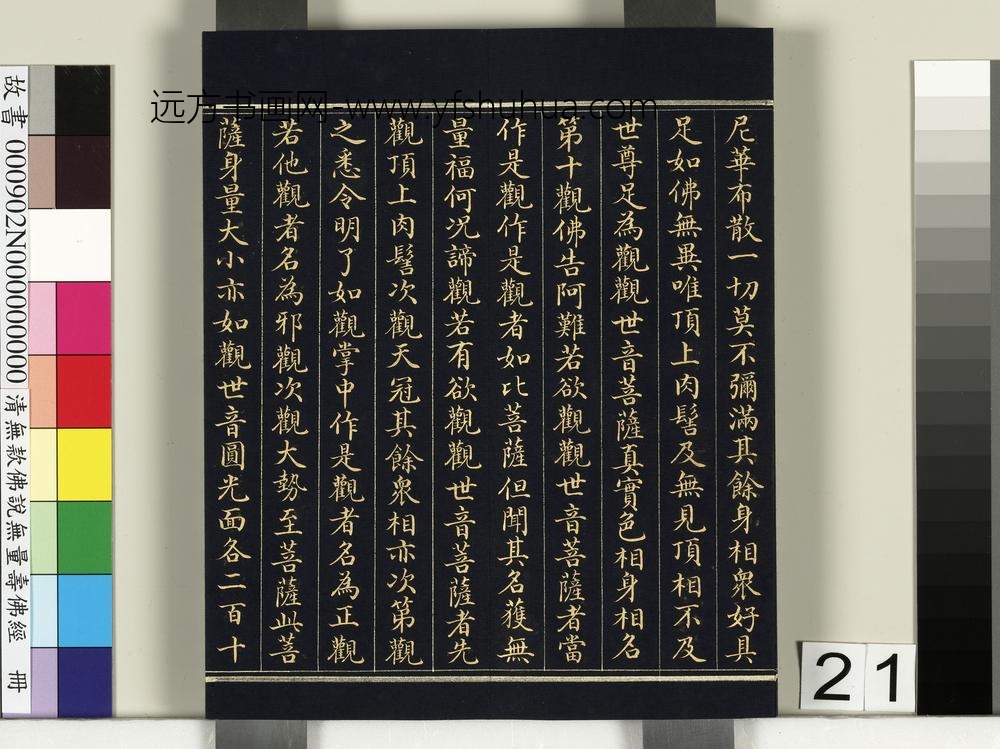 尼華布散一切莫不彌滿其餘身相衆好具
足如佛無異唯頂上肉髻及無見頂相不及
世尊足為觀觀世音菩薩真實色相身相名
第十觀佛告阿難若欲觀觀世音菩薩者當
作是觀作是觀者如比菩薩但聞其名獲無
量福何況諦觀若有欲觀觀世音菩薩者先
觀頂上肉髻次觀天冠其餘衆相亦次第觀
之悉令明了如觀掌中作是觀者名為正觀
若他觀者名為邪觀次觀大勢至菩薩此菩
薩身量大小亦如觀世音圓光面各二百十
远方书画网-www.yfshuhua.com
故書 000902N000000000 清無款佛說無量壽佛經 冊
21